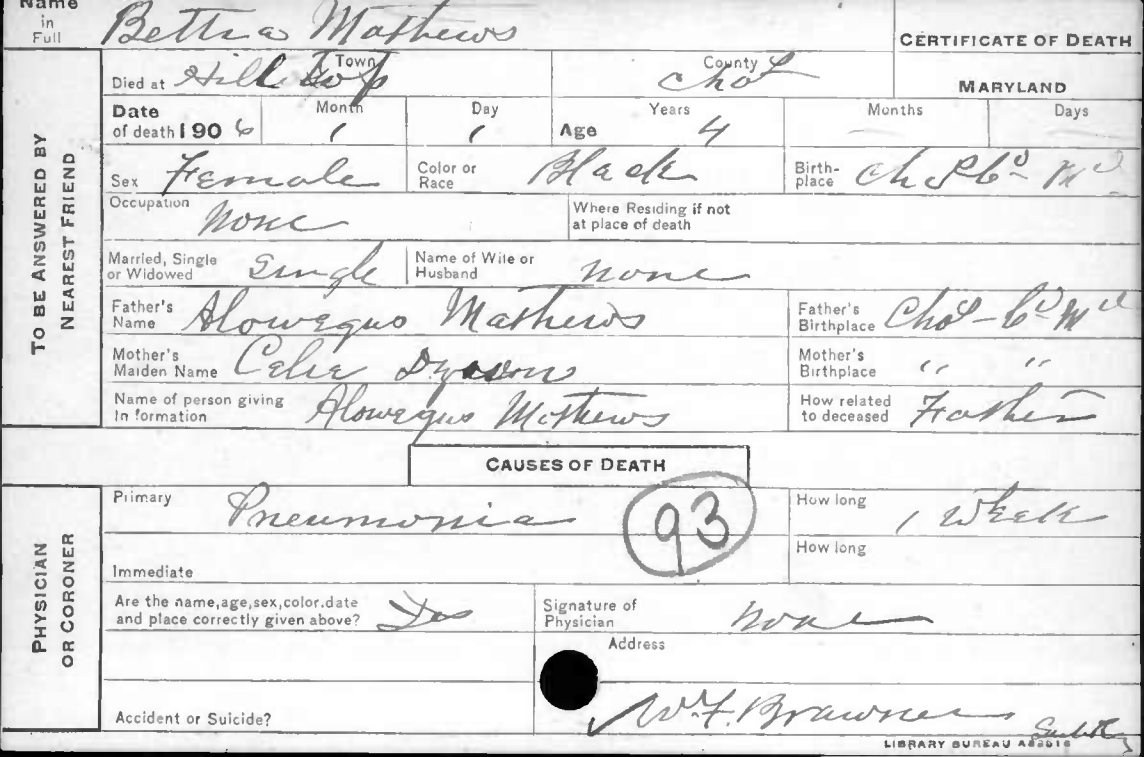 Name in Full Bettia Mathews
CERTIFICATE OF DEATH
Died at Hill Top Town Chas County
MARYLAND
TO BE ANSWERED BY NEAREST FRIEND
Date of death 1906 Month 1 Day 1 Age Years 4 Months — Days —
Sex Female Color or Race Black Birthplace Chas Co Md
Occupation None Where Residing if not at place of death
Married, Single or Widowed Single Name of Wife or Husband None
Father's Name Alowegus Mathews Father's Birthplace Chas Co Md
Mother's Maiden Name Celie Dyson Mother's Birthplace " "
Name of person giving In formation Alowegus Mathews How related to deceased Father
CAUSES OF DEATH
PHYSICIAN OR CORONER
Primary Pneumonia 93 How long 1 Week
Immediate How long
Are the name,age,sex,color.date and place correctly given above? Yes Signature of Physician None
Address
Accident or Suicide? W. F. Brawner
LIBRARY BUREAU